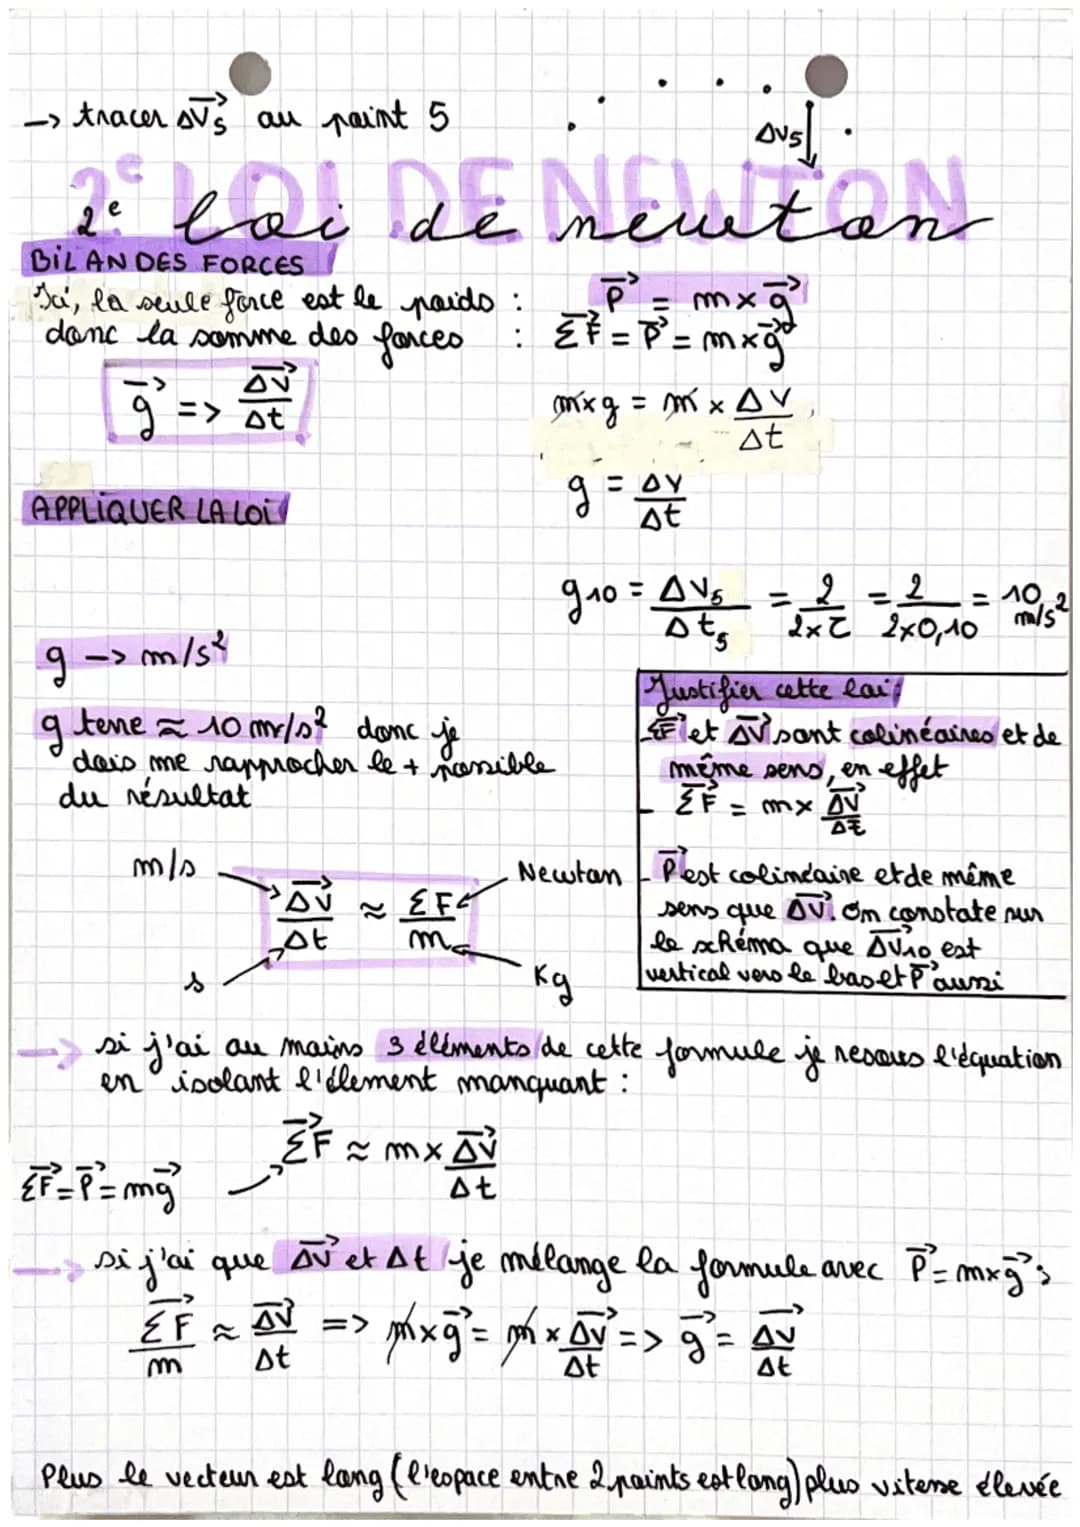 -> tracer ΔV⃗5 au point 5
ΔV5
2e LOI DE NEWTON
2e loi de newton
BILAN DES FORCES
Ici, la seule force est le poids : P⃗ = m x g⃗
donc la somme des forces : ΣF⃗ = P⃗ = m x g⃗
g⃗ => ΔV⃗/Δt
m x g = m x ΔV/Δt
g = ΔV/Δt
APPLIQUER LA LOI
g10 = ΔV5/Δt5 = 2/2xτ = 2/2x0,10 = 10 m/s²
g -> m/s²
g terre ≈ 10 m/s² donc je
dois me rapprocher le + possible
du résultat
Justifier cette loi :
ΣF⃗ et ΔV⃗ sont colinéaires et de
même sens, en effet
- ΣF⃗ = m x ΔV⃗/Δt
- P⃗ est colinéaire et de même
sens que ΔV⃗. On constate sur
le schéma que ΔV⃗10 est
vertical vers le bas et P⃗ aussi
m/s
Newton
ΔV⃗/Δt ≈ ΣF/m
s
Kg
-> si j'ai au moins 3 éléments de cette formule je resous l'équation
en isolant l'élement manquant :
ΣF⃗ ≈ m x ΔV⃗/Δt
ΣF⃗ = P⃗ = mg⃗
-> si j'ai que ΔV⃗ et Δt je mélange la formule avec P⃗ = m x g⃗ :
ΣF⃗/m ≈ ΔV⃗/Δt => m x g⃗ = m x ΔV⃗/Δt => g⃗ = ΔV⃗/Δt
Plus le vecteur est long (l'espace entre 2 points est long) plus vitesse élevée